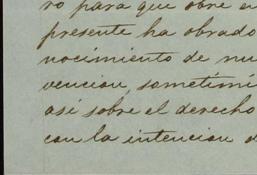 ro para que obre en
presente ha obrado
nocimiento de nu
vencion, sometimi
así sobre el derecho
con la intencion d